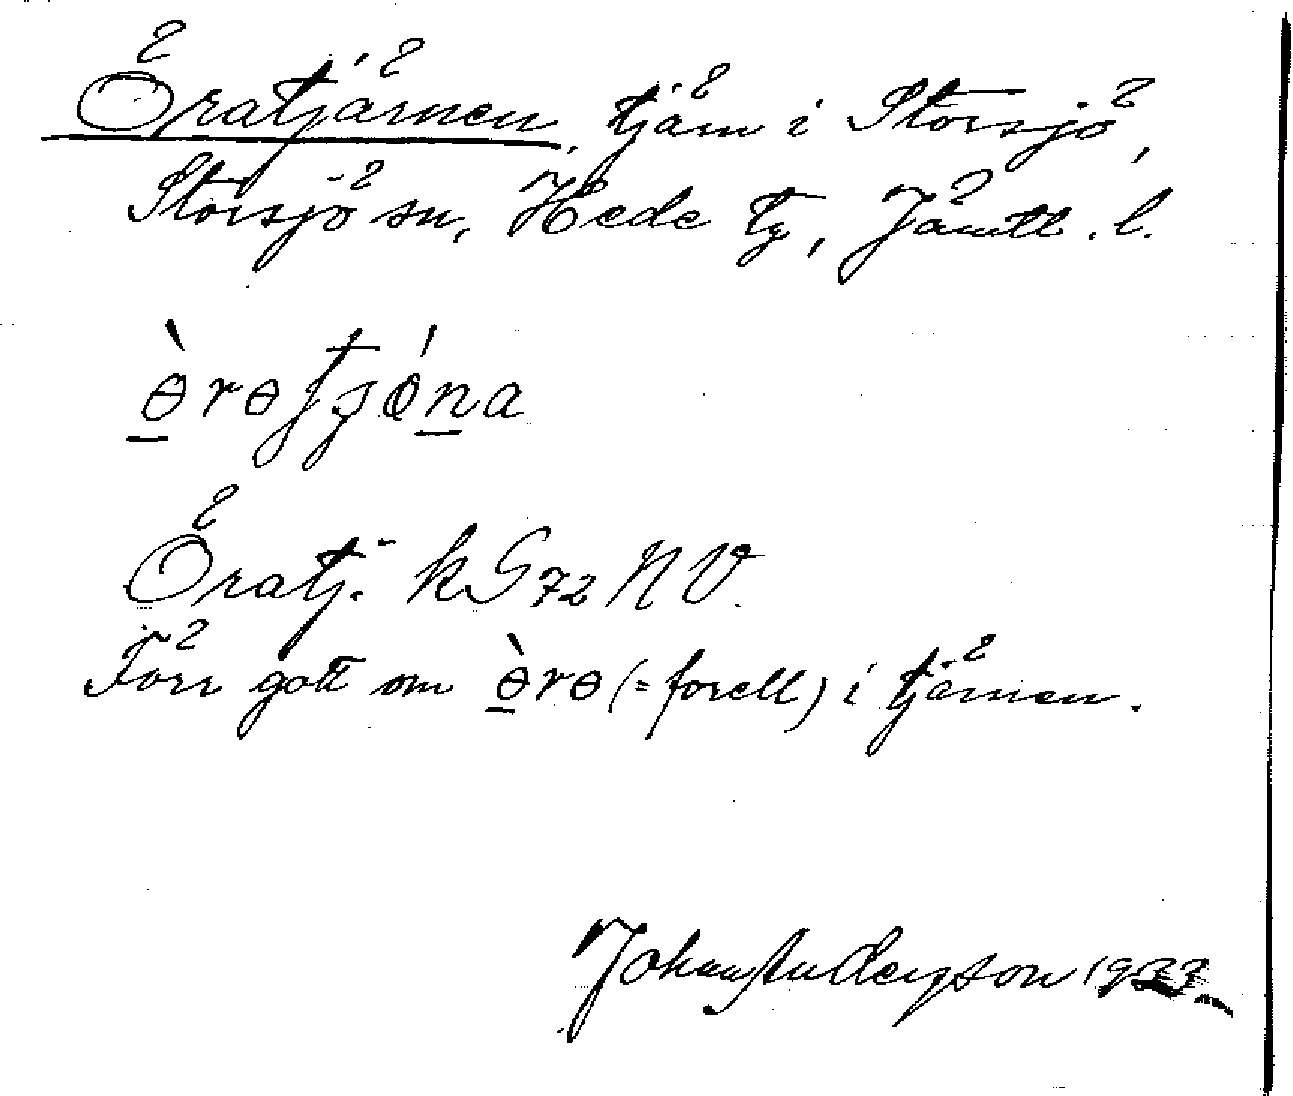 Öratjärnen, tjärn i Storsjö,
Storsjö sn, Hede tg, Jämtl. l.
ɵ̠̀rɵʃʈȷɵ́n̠a
Öratj. kG72NV.
Förr gott om ɵ̠̀rɵ (=forell) i tjärnen.
Johan Anderson 1933